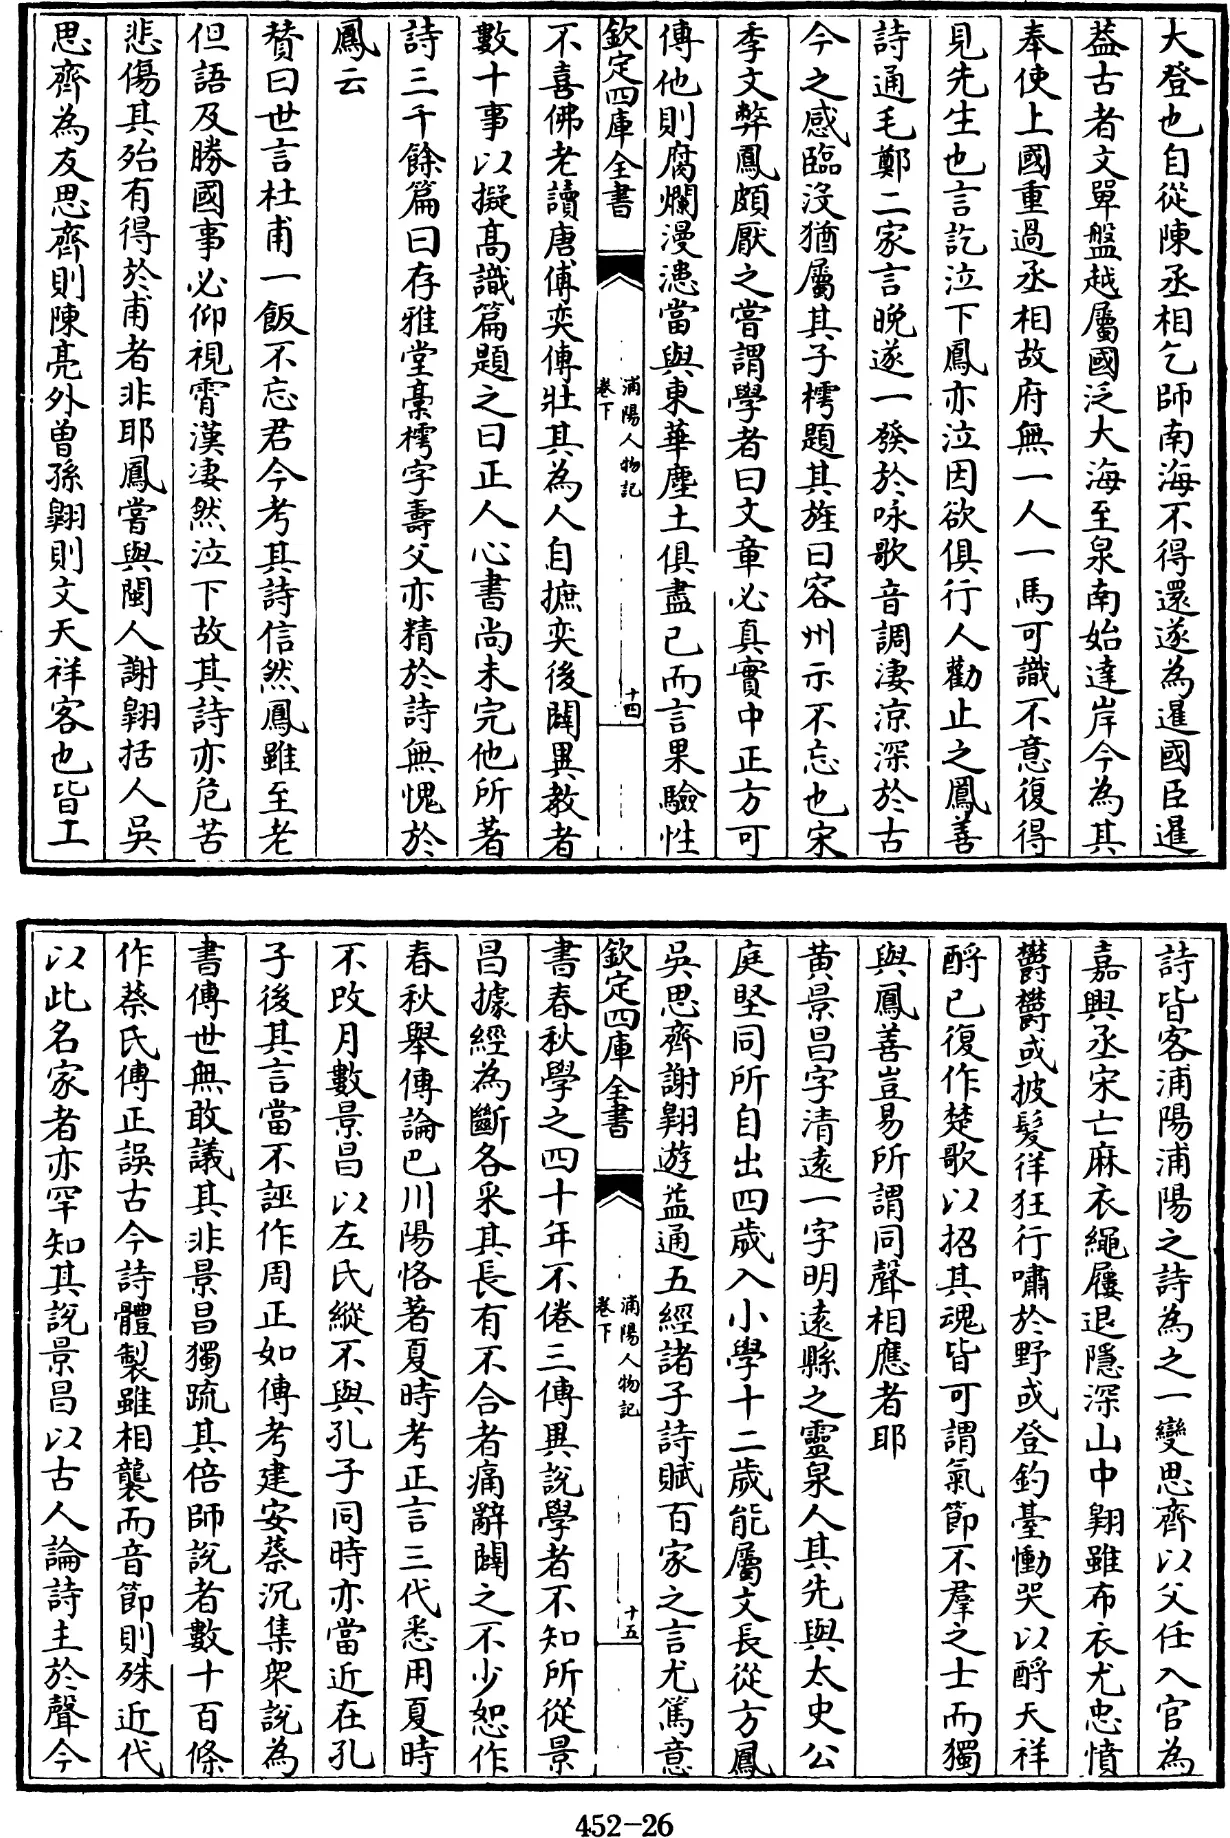 大登也自從陳丞相乞師南海不得還遂為暹國臣暹
葢古者文單盤越屬國泛大海至泉南始達岸今為其
奉使上國重過丞相故府無一人一馬可識不意復得
見先生也言訖泣下鳳亦泣因欲俱行人勸止之鳳善
詩通毛鄭二家言晩遂一發於咏歌音調淒涼深於古
今之感臨沒猶屬其子樗題其旌曰容州示不忘也宋
季文弊鳳頗厭之嘗謂學者曰文章必真實中正方可
傳他則腐爛漫漶當與東華塵土俱盡已而言果驗性
欽定四庫全書
浦陽人物記
卷下
十四
不喜佛老讀唐傅奕傳壯其為人自摭奕後闢異教者
數十事以擬髙識篇題之曰正人心書尚未完他所著
詩三千餘篇曰存雅堂稾樗字壽父亦精於詩無愧於
鳳云
賛曰世言杜甫一飯不忘君今考其詩信然鳳雖至老
但語及勝國事必仰視霄漢凄然泣下故其詩亦危苦
悲傷其殆有得於甫者非耶鳳嘗與閩人謝翱括人吳
思齊為友思齊則陳亮外曽孫翱則文天祥客也皆工
詩皆客浦陽浦陽之詩為之一變思齊以父任入官為
嘉興丞宋亡麻衣繩屨退隱深山中翱雖布衣尤忠憤
鬱鬱或披髮徉狂行嘯於野或登釣臺慟哭以酹天祥
酹已復作楚歌以招其魂皆可謂氣節不羣之士而獨
與鳳善豈易所謂同聲相應者耶
黄景昌字清逺一字明逺縣之靈泉人其先與太史公
庭堅同所自出四歲入小學十二歲能屬文長從方鳳
吳思齊謝翱遊益通五經諸子詩賦百家之言尤篤意
欽定四庫全書
浦陽人物記
卷下
十五
書春秋學之四十年不倦三傳異說學者不知所從景
昌據經為斷各采其長有不合者痛辭闢之不少恕作
春秋舉傳論巴川陽恪著夏時考正言三代悉用夏時
不改月數景昌以左氏縱不與孔子同時亦當近在孔
子後其言當不誣作周正如傳考建安蔡沉集衆說為
書傳世無敢議其非景昌獨疏其倍師說者數十百條
作蔡氏傳正誤古今詩體製雖相襲而音節則殊近代
以此名家者亦罕知其說景昌以古人論詩主於聲今
452-26